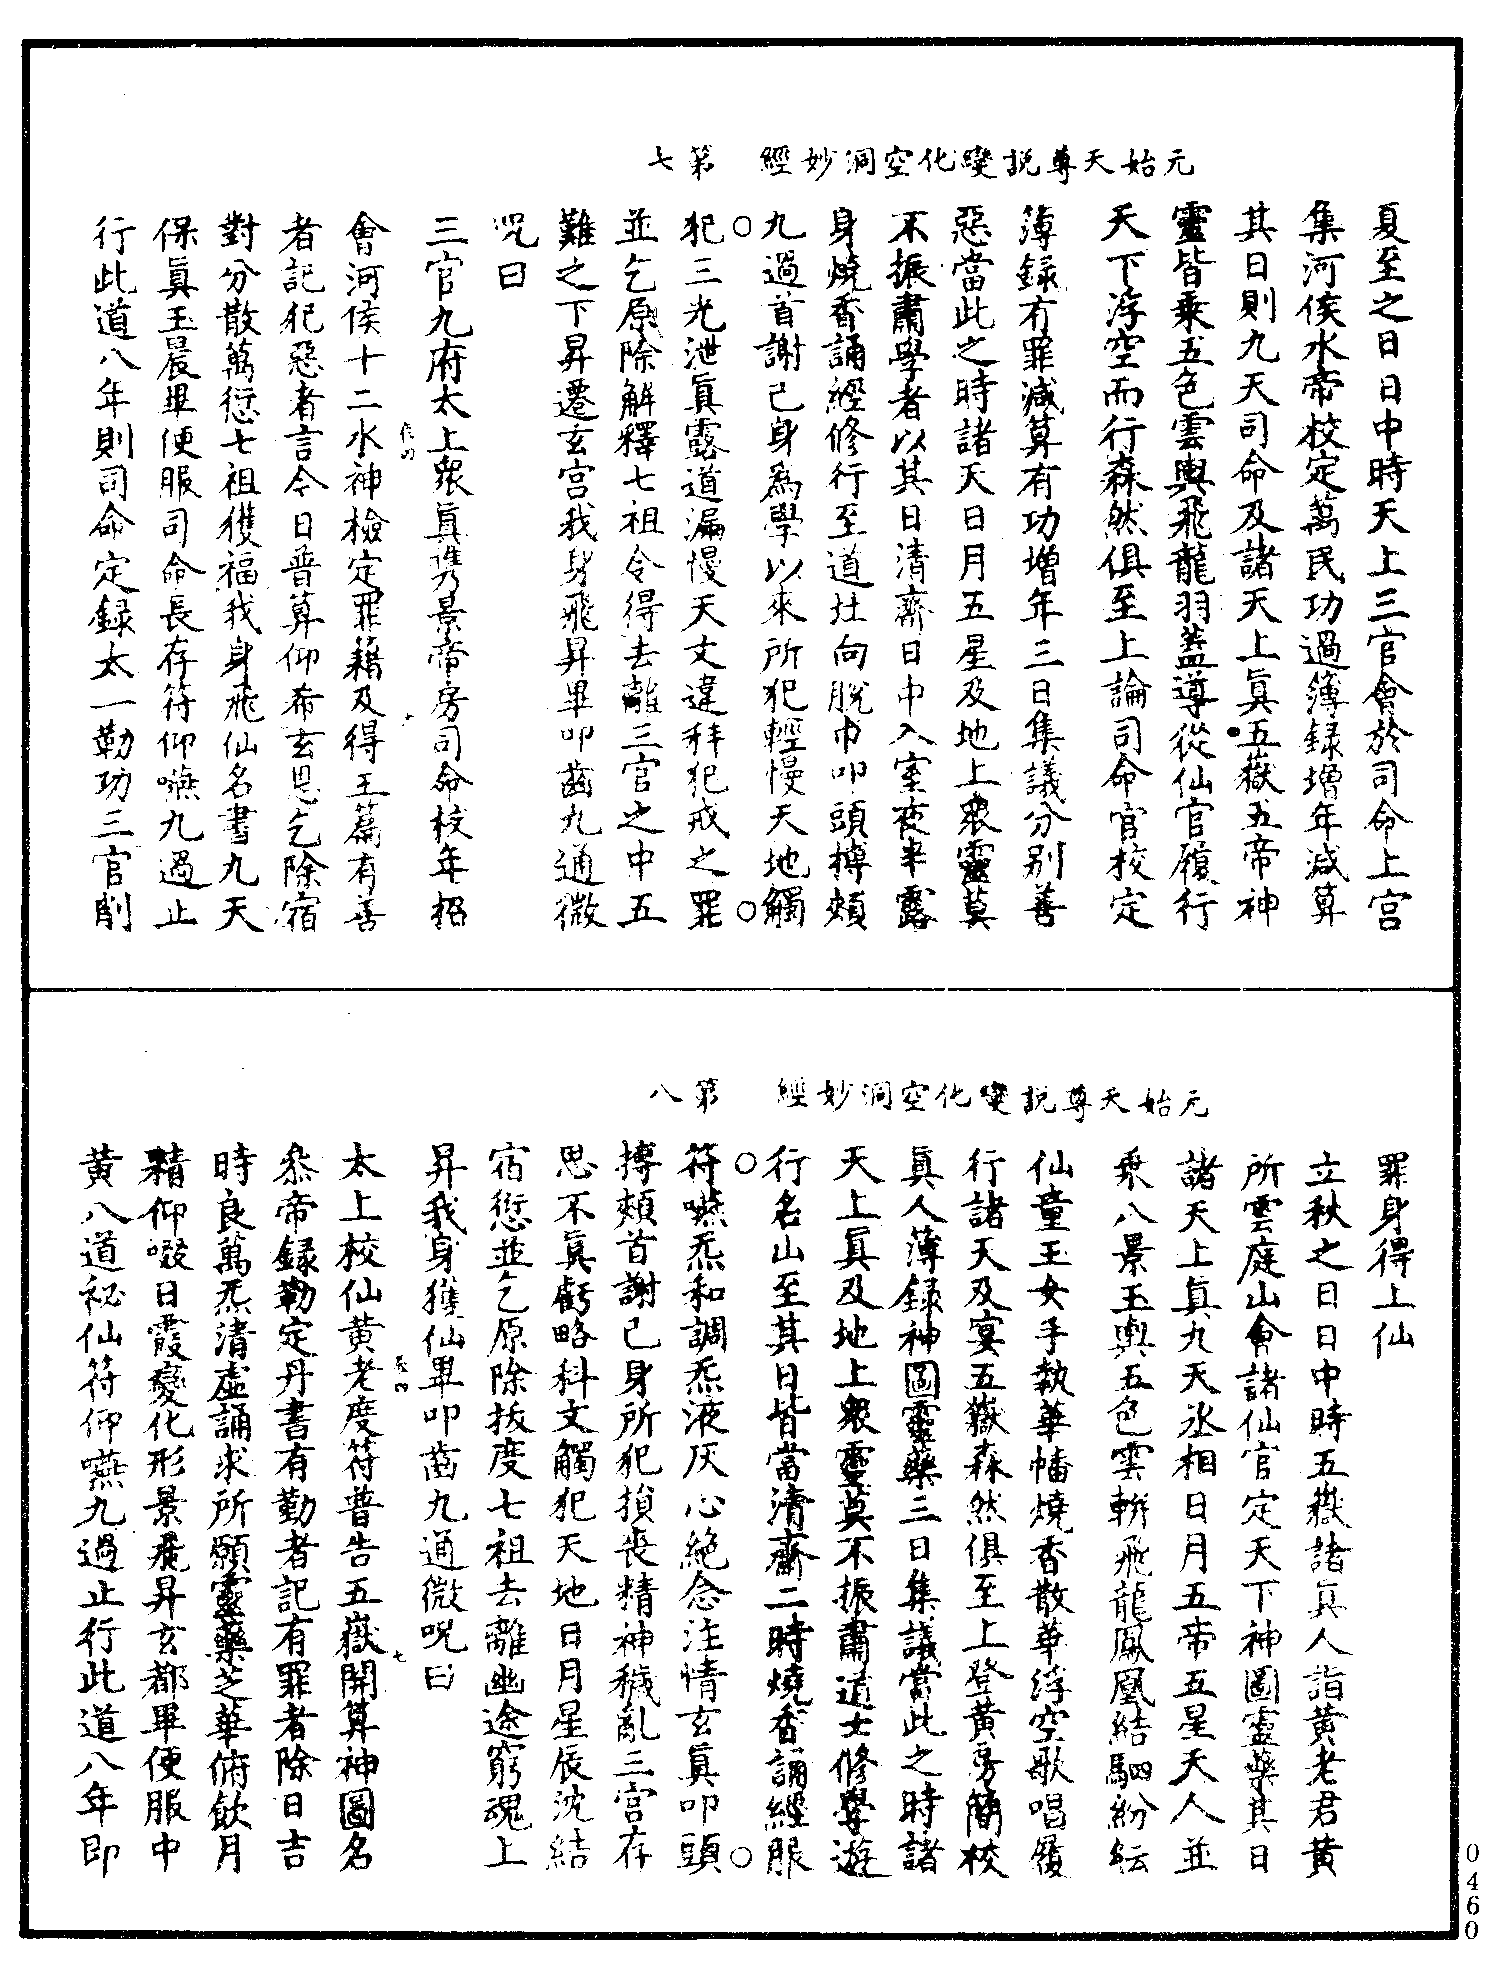 元始天尊說變化空洞妙經　第七
夏至之日日中時天上三官會於司命上宮
集河侯水帝校定萬民功過簿録増年減算
其日則九天司命及諸天上眞五嶽五帝神
靈皆乗五色雲輿飛龍羽蓋導從仙官履行
天下浮空而行森然俱至上論司命官校定
簿録有罪減算有功增年三日集議分别善
惡當此之時諸天日月五星及地上衆靈莫
不振肅學者以其日清齋日中入室夜半露
身燒香誦經修行至道灶向脫巾叩頭搏頰
九過首謝己身爲學以來所犯輕慢天地觸
犯三光泄眞露道漏慢天文違科犯戒之罪
並乞原除解釋七祖令得去離三官之中五
難之下昇遷玄宮我身飛昇畢叩齒九通微
咒曰
三官九府太上衆眞携景帝房司命校年招
會河侯十二水神檢定罪籍及得王篇有善
者記犯惡者言今日普算仰希玄恩乞除宿
對分散萬愆七祖獲福我身飛仙名書九天
保眞玉晨畢便服司命長存符仰嚥九過止
行此道八年則司命定録太一勒功三官削
元始天尊說變化空洞妙經　第八
罪身得上仙
立秋之日日中時五嶽諸眞人詣黄老君黄
所雲庭山會諸仙官定天下神圖靈藥其日
諸天上眞九天丞相日月五帝五星天人並
乗八景玉輿五色雲軿飛龍鳳凰結駟紛紜
仙童玉女手執華幡燒香散華浮空歌唱履
行諸天及宴五嶽森然俱至上登黄房簡校
眞人薄録神圖靈藥三日集議當此之時諸
天上眞及地上衆靈莫不振肅道士修學遊
行名山至其日皆當清齋二時燒香誦經服
符嚥炁和調炁液灰心絶念注情玄眞叩頭
搏頰首謝己身所犯損喪精神穢亂三宮存
思不眞虧略科文觸犯天地日月星辰沈結
宿愆並乞原除拔度七祖去離幽途窮魂上
昇我身獲仙畢叩齒九通微咒曰
太上校仙黄老度符普告五嶽開算神圖名
叅帝録勒定丹書有勤者記有罪者除日吉
時良萬炁清虛誦求所願靈藥芝華俯飲月
精仰啜日霞變化形景飛昇玄都畢便服中
黄八道祕仙符仰嚥九過止行此道八年即
0460